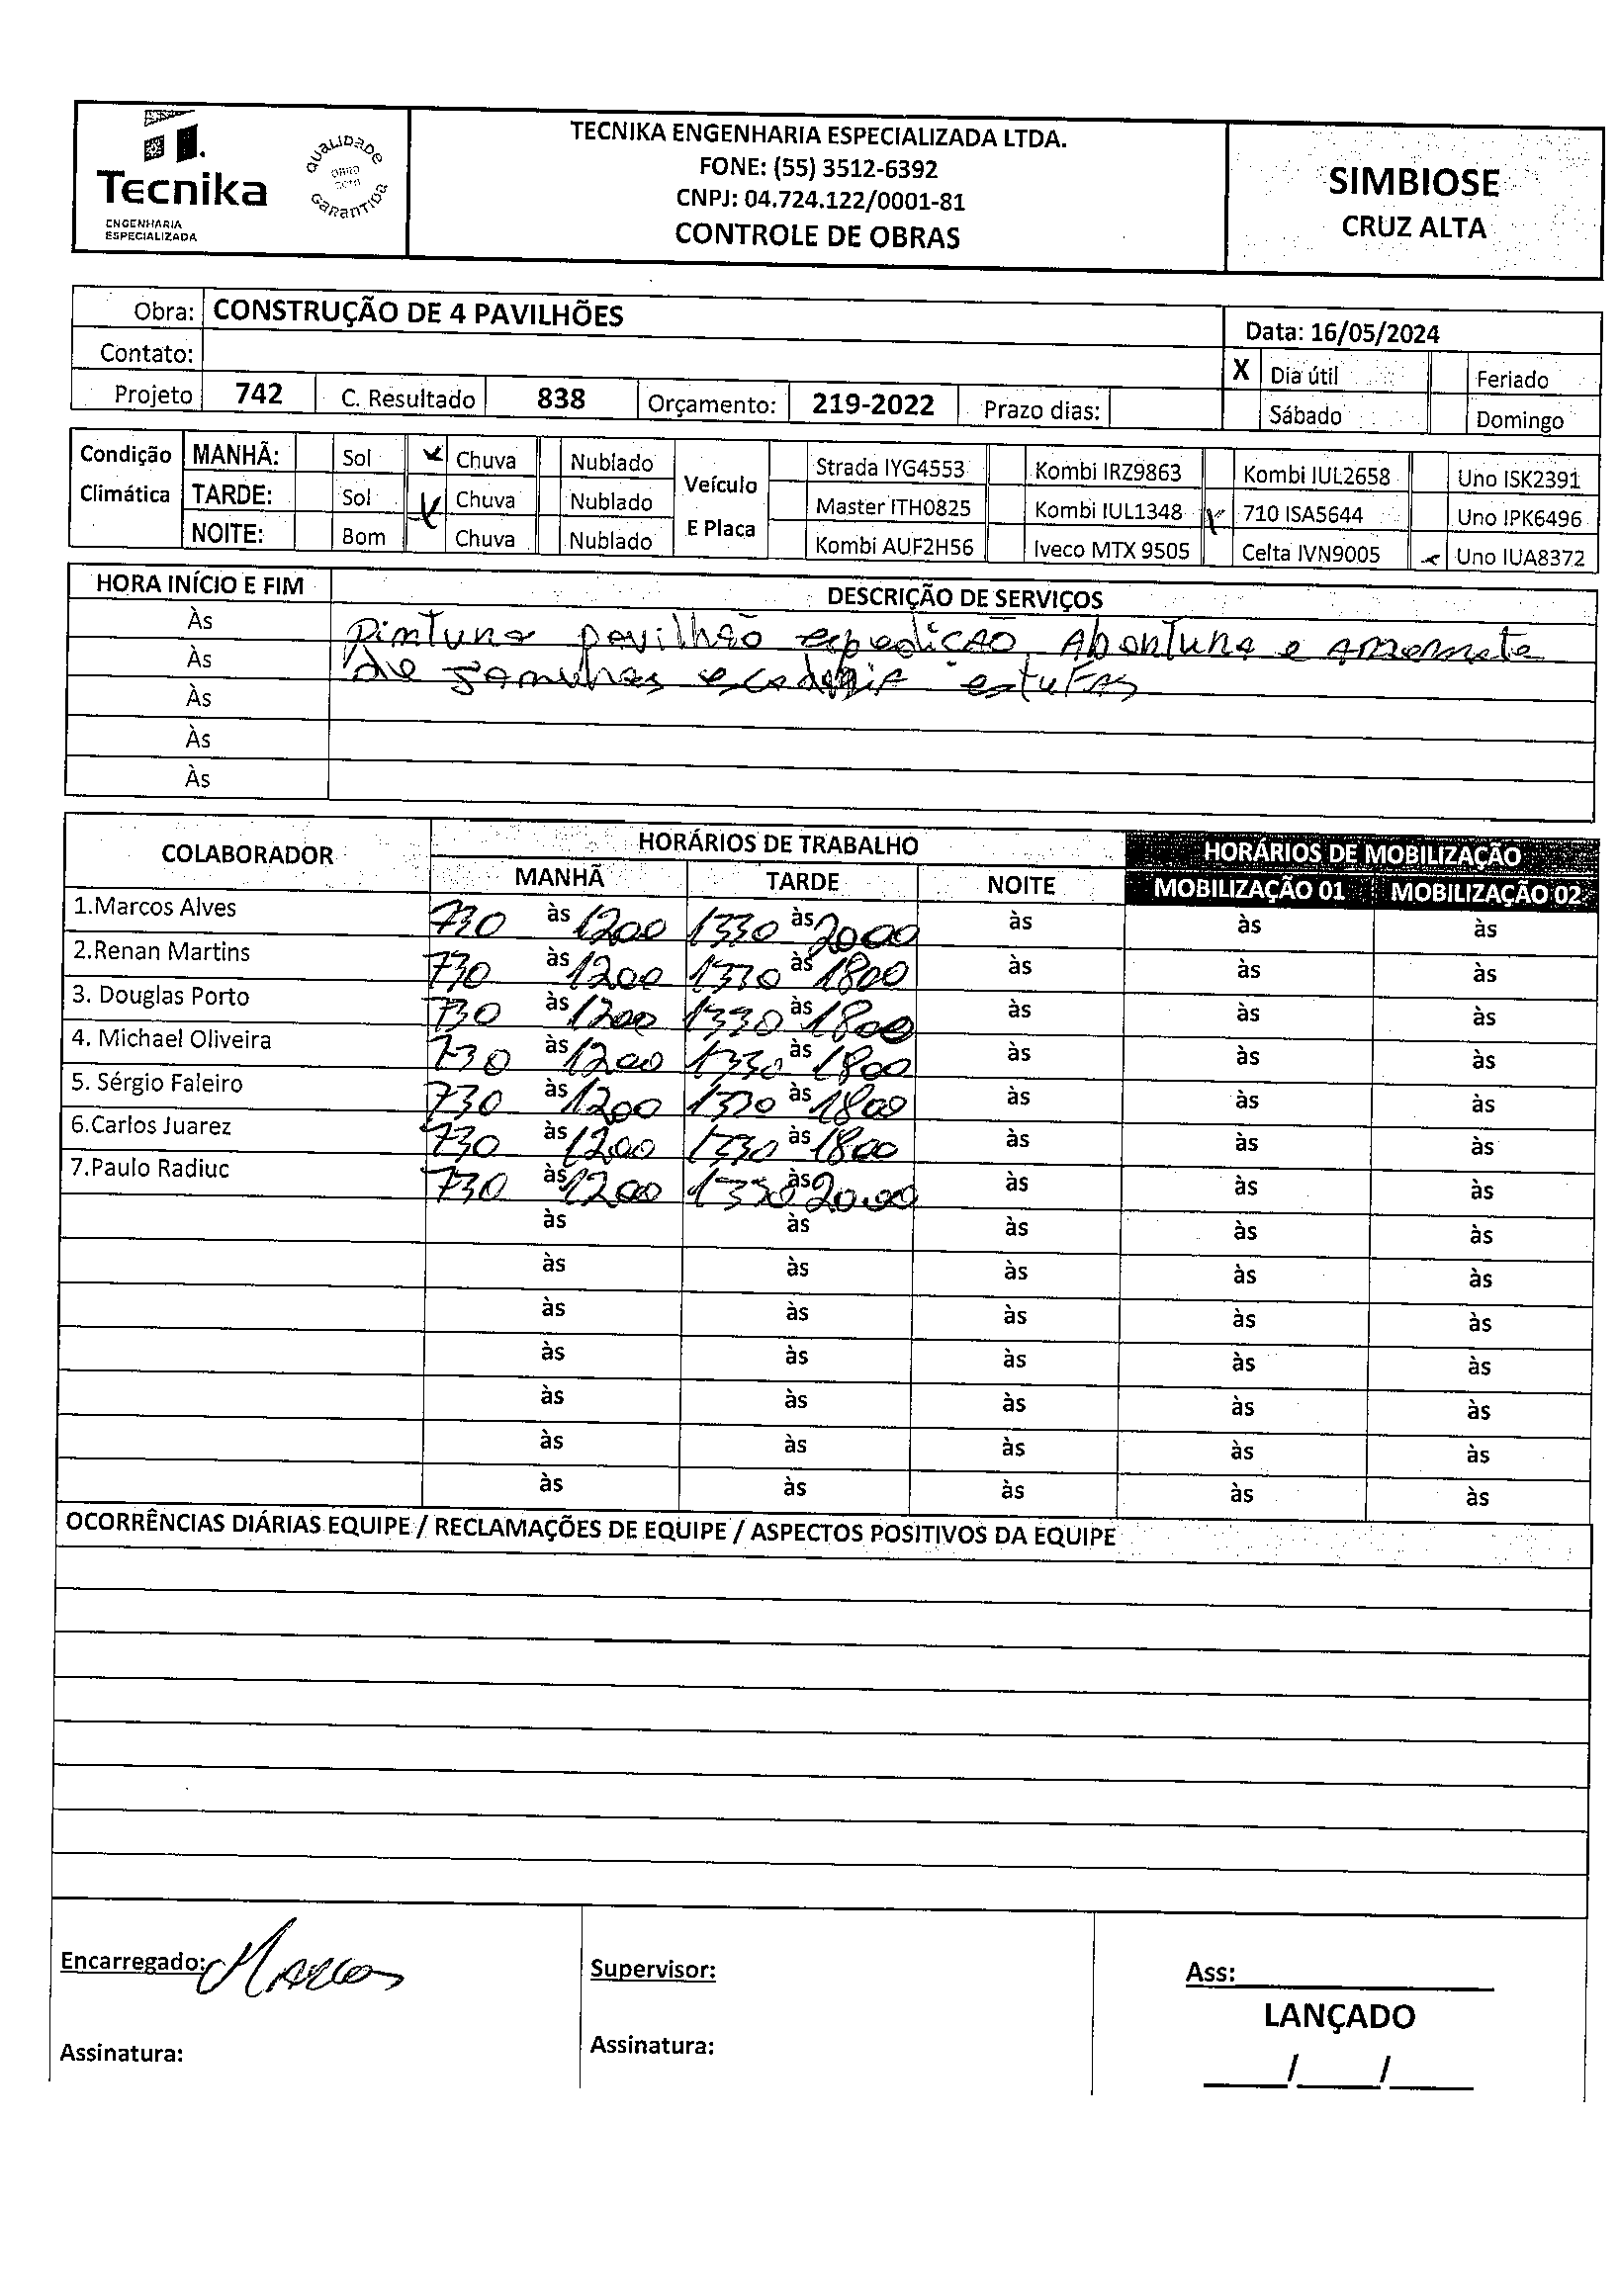 Tecnika
ENGENHARIA
ESPECIALIZADA
QUALIDADE
GARANTIDA
TECNIKA ENGENHARIA ESPECIALIZADA LTDA.
FONE: (55) 3512-6392
CNPJ: 04.724.122/0001-81
CONTROLE DE OBRAS
SIMBIOSE
CRUZ ALTA
Obra: CONSTRUÇÃO DE 4 PAVILHÕES
Data: 16/05/2024
Contato:
X Dia útil Feriado
Projeto 742 C. Resultado 838 Orçamento: 219-2022 Prazo dias:
Sábado Domingo
Condição Climática
MANHÃ: Sol x Chuva Nublado
TARDE: Sol x Chuva Nublado
NOITE: Bom Chuva Nublado
Veículo E Placa
Strada IYG4553 Kombi IRZ9863 Kombi IUL2658 Uno ISK2391
Master ITH0825 Kombi IUL1348 x 710 ISA5644 Uno IPK6496
Kombi AUF2H56 Iveco MTX 9505 Celta IVN9005 x Uno IUA8372
HORA INÍCIO E FIM DESCRIÇÃO DE SERVIÇOS
Às Pintura pavilhão expedição. Abertura e arremate
Às de janelhas estufas
Às
Às
Às
COLABORADOR HORÁRIOS DE TRABALHO HORÁRIOS DE MOBILIZAÇÃO
MANHÃ TARDE NOITE MOBILIZAÇÃO 01 MOBILIZAÇÃO 02
1.Marcos Alves 730 às 1200 1330 às 2000 às às às
2.Renan Martins 730 às 1200 1330 às 1800 às às às
3. Douglas Porto 730 às 1200 1330 às 1800 às às às
4. Michael Oliveira 730 às 1200 1330 às 1800 às às às
5. Sérgio Faleiro 730 às 1200 1330 às 1800 às às às
6.Carlos Juarez 730 às 1200 1330 às 1800 às às às
7.Paulo Radiuc 730 às 1200 1330 às 2000 às às às
às às às às às
às às às às às
às às às às às
às às às às às
às às às às às
às às às às às
às às às às às
OCORRÊNCIAS DIÁRIAS EQUIPE / RECLAMAÇÕES DE EQUIPE / ASPECTOS POSITIVOS DA EQUIPE
Encarregado: Marcos
Supervisor:
Ass:
LANÇADO
Assinatura:
Assinatura:
____/____/____